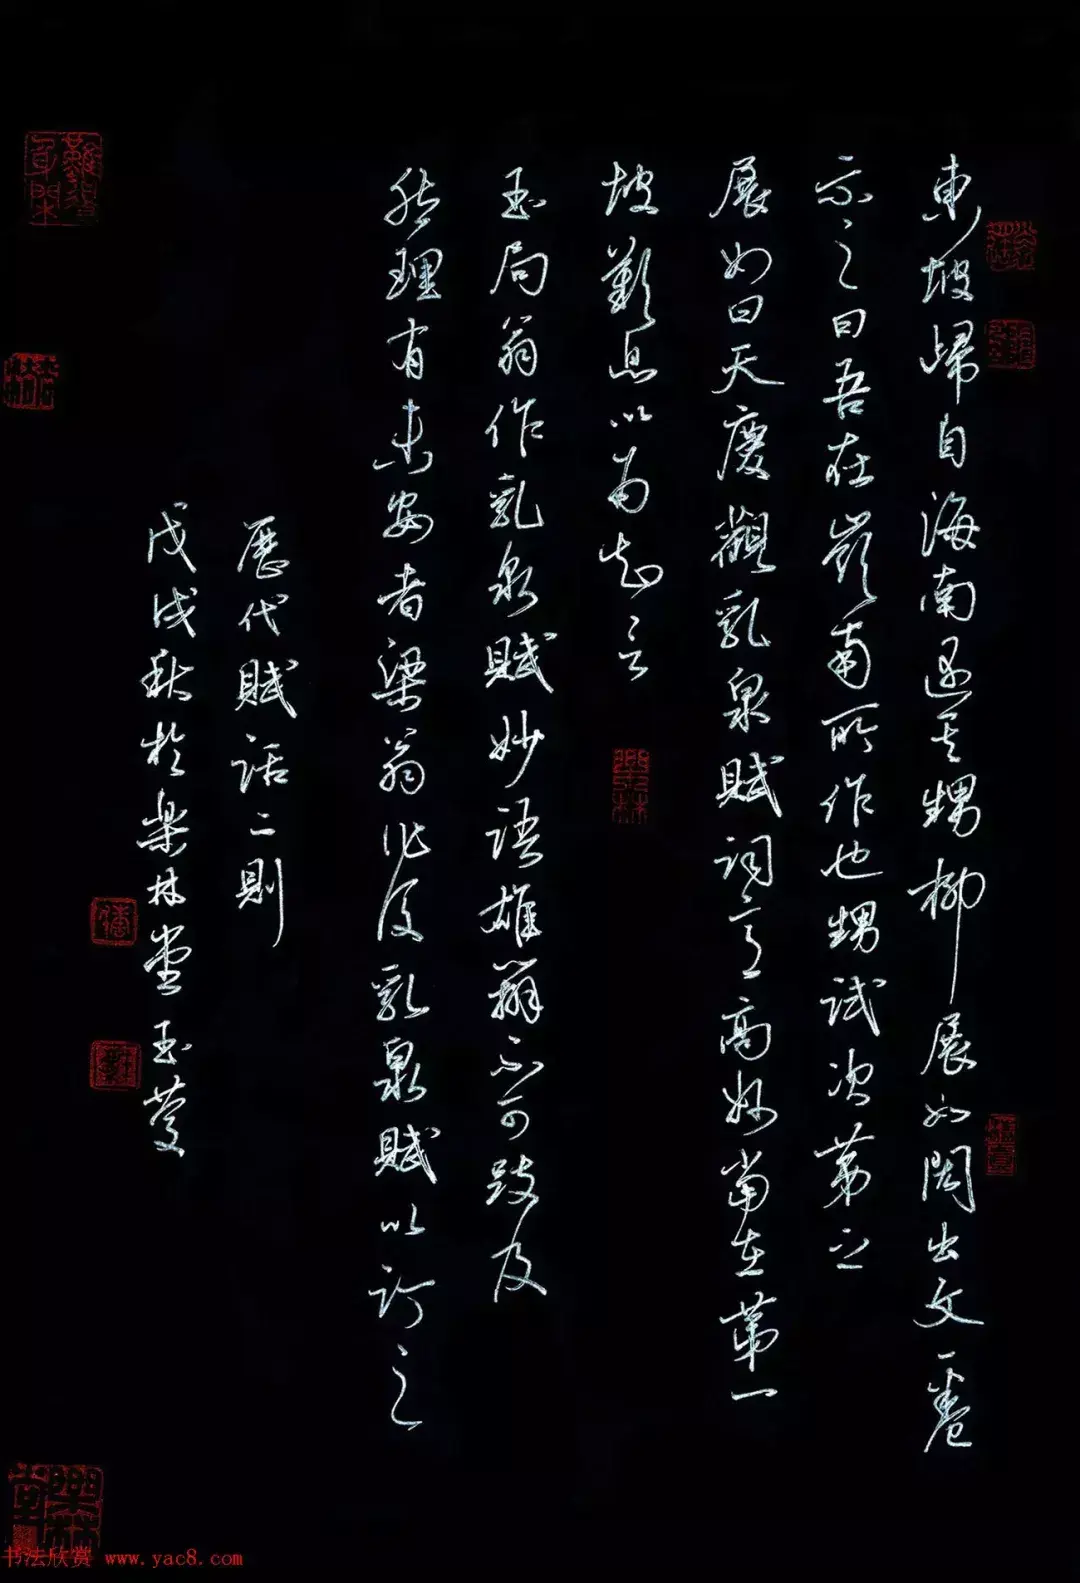 東坡歸自海南遇其甥柳展如閎出文一卷
示之曰吾在嶺南所作也甥試次第之
展如曰天慶觀乳泉賦詞意高妙當在第一
坡歎息以為知言
玉局翁作乳泉賦妙語雄辯不可跂及
然理有未安者梁翁作後乳泉賦以訂之
歷代賦話二則
戊戌秋於樂林堂玉
樂林
书法欣赏 www.yac8.com